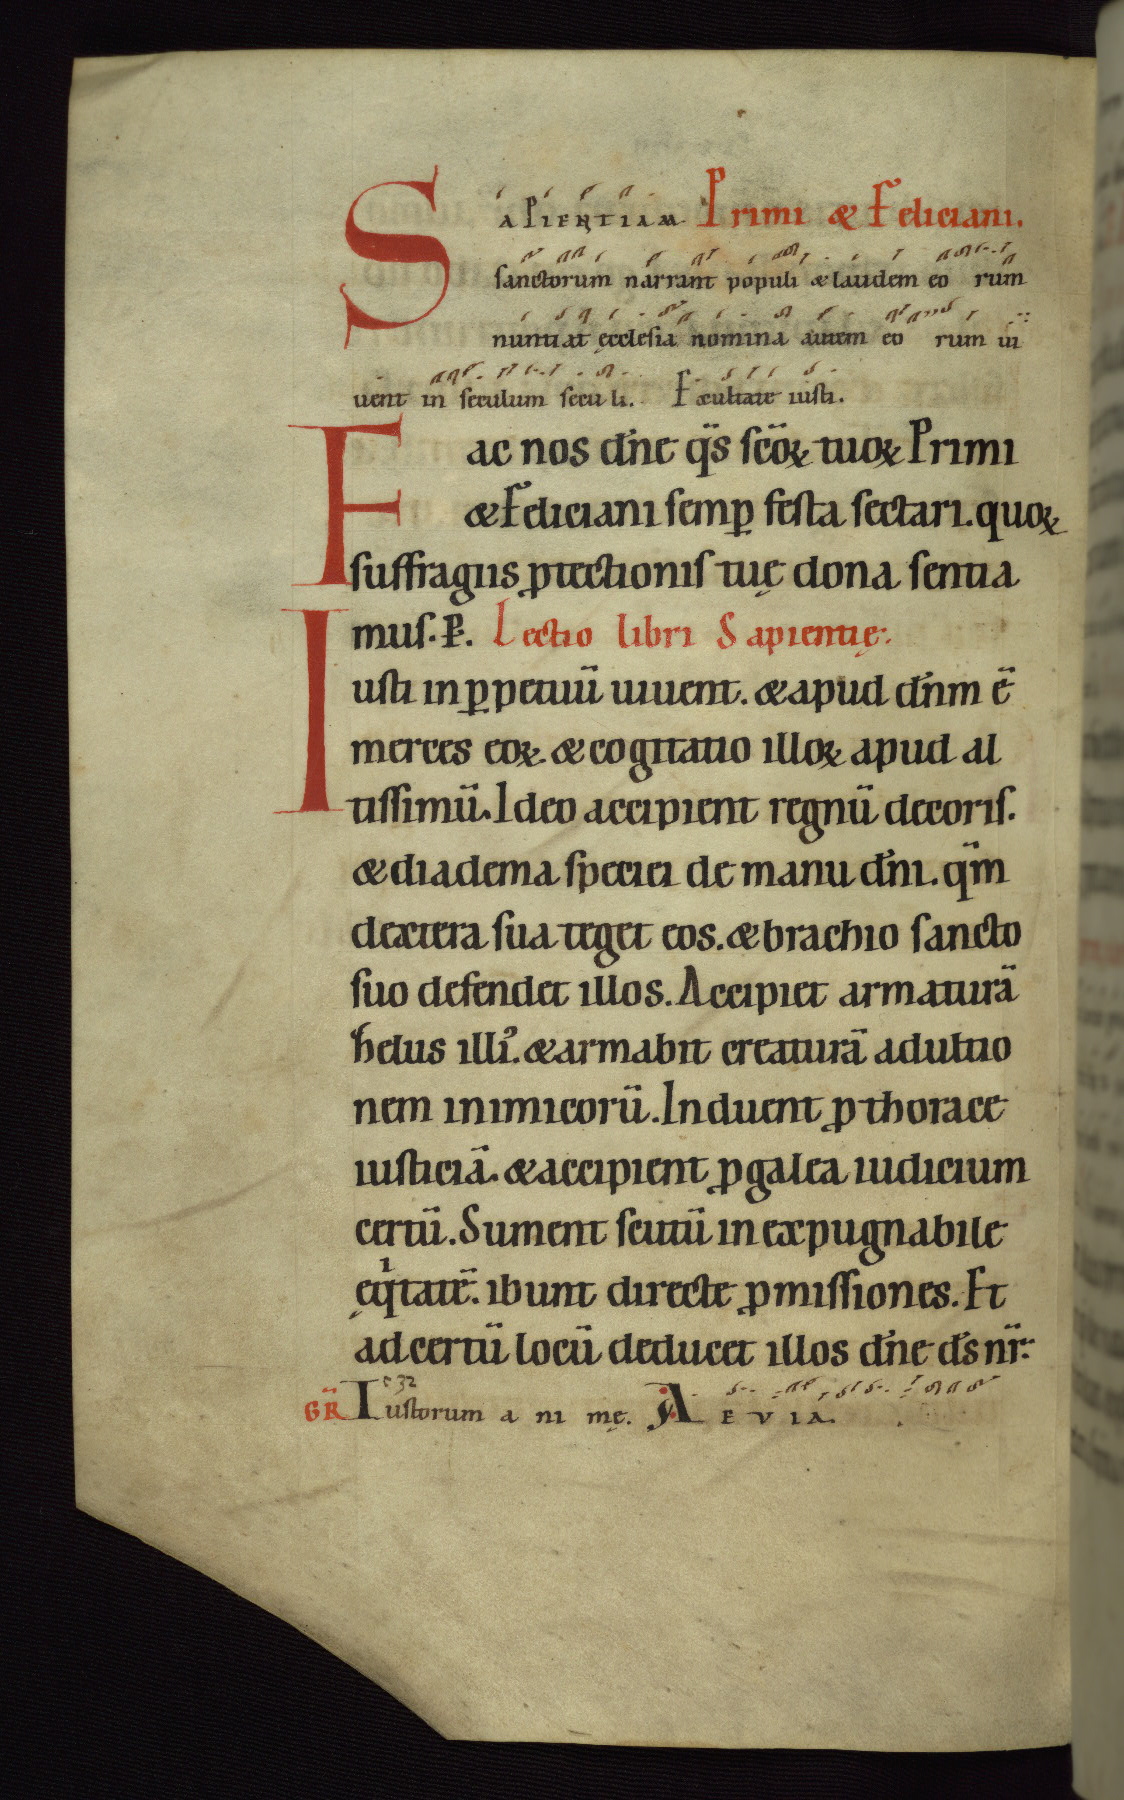 SAPIENTIAM Primi & Feliciani.
sanctorum narrant populi & laudem eo rum
nuntiat ęcclesia nomina autem eo rum ui
uent in seculum secu li. Exultate iusti.
Fac nos dn̄e q̄s sc̄oꝝ tuoꝝ Primi
& Feliciani semꝑ festa sectari. quoꝝ
suffragiis ꝓtectionis tuę dona sentia
mus. P̱. Lectio libri Sapientię.
Iusti in ꝑpetuū uiuent. & apud dn̄m ē
merces eoꝝ. & cogitatio illoꝝ apud al
tissimū. Ideo accipient regnū decoris.
& diadema speciei de manu dn̄i. qm̄
dextera sua teget eos. & brachio sancto
suo defendet illos. Accipiet armaturā
helus illi᾿. & armabit creaturā adultio
nem inimicorū. Induent ꝓ thorace
iusticiā. & accipient ꝓ galea iudicium
certū. Sument scutū inexpugnabile
ęqͥtatē. ibunt directe ꝓmissiones. Et
ad certū locū deducet illos dn̄e ds̄ nr̄.
GR̄ Iustorum a ni mę. AEVIA.